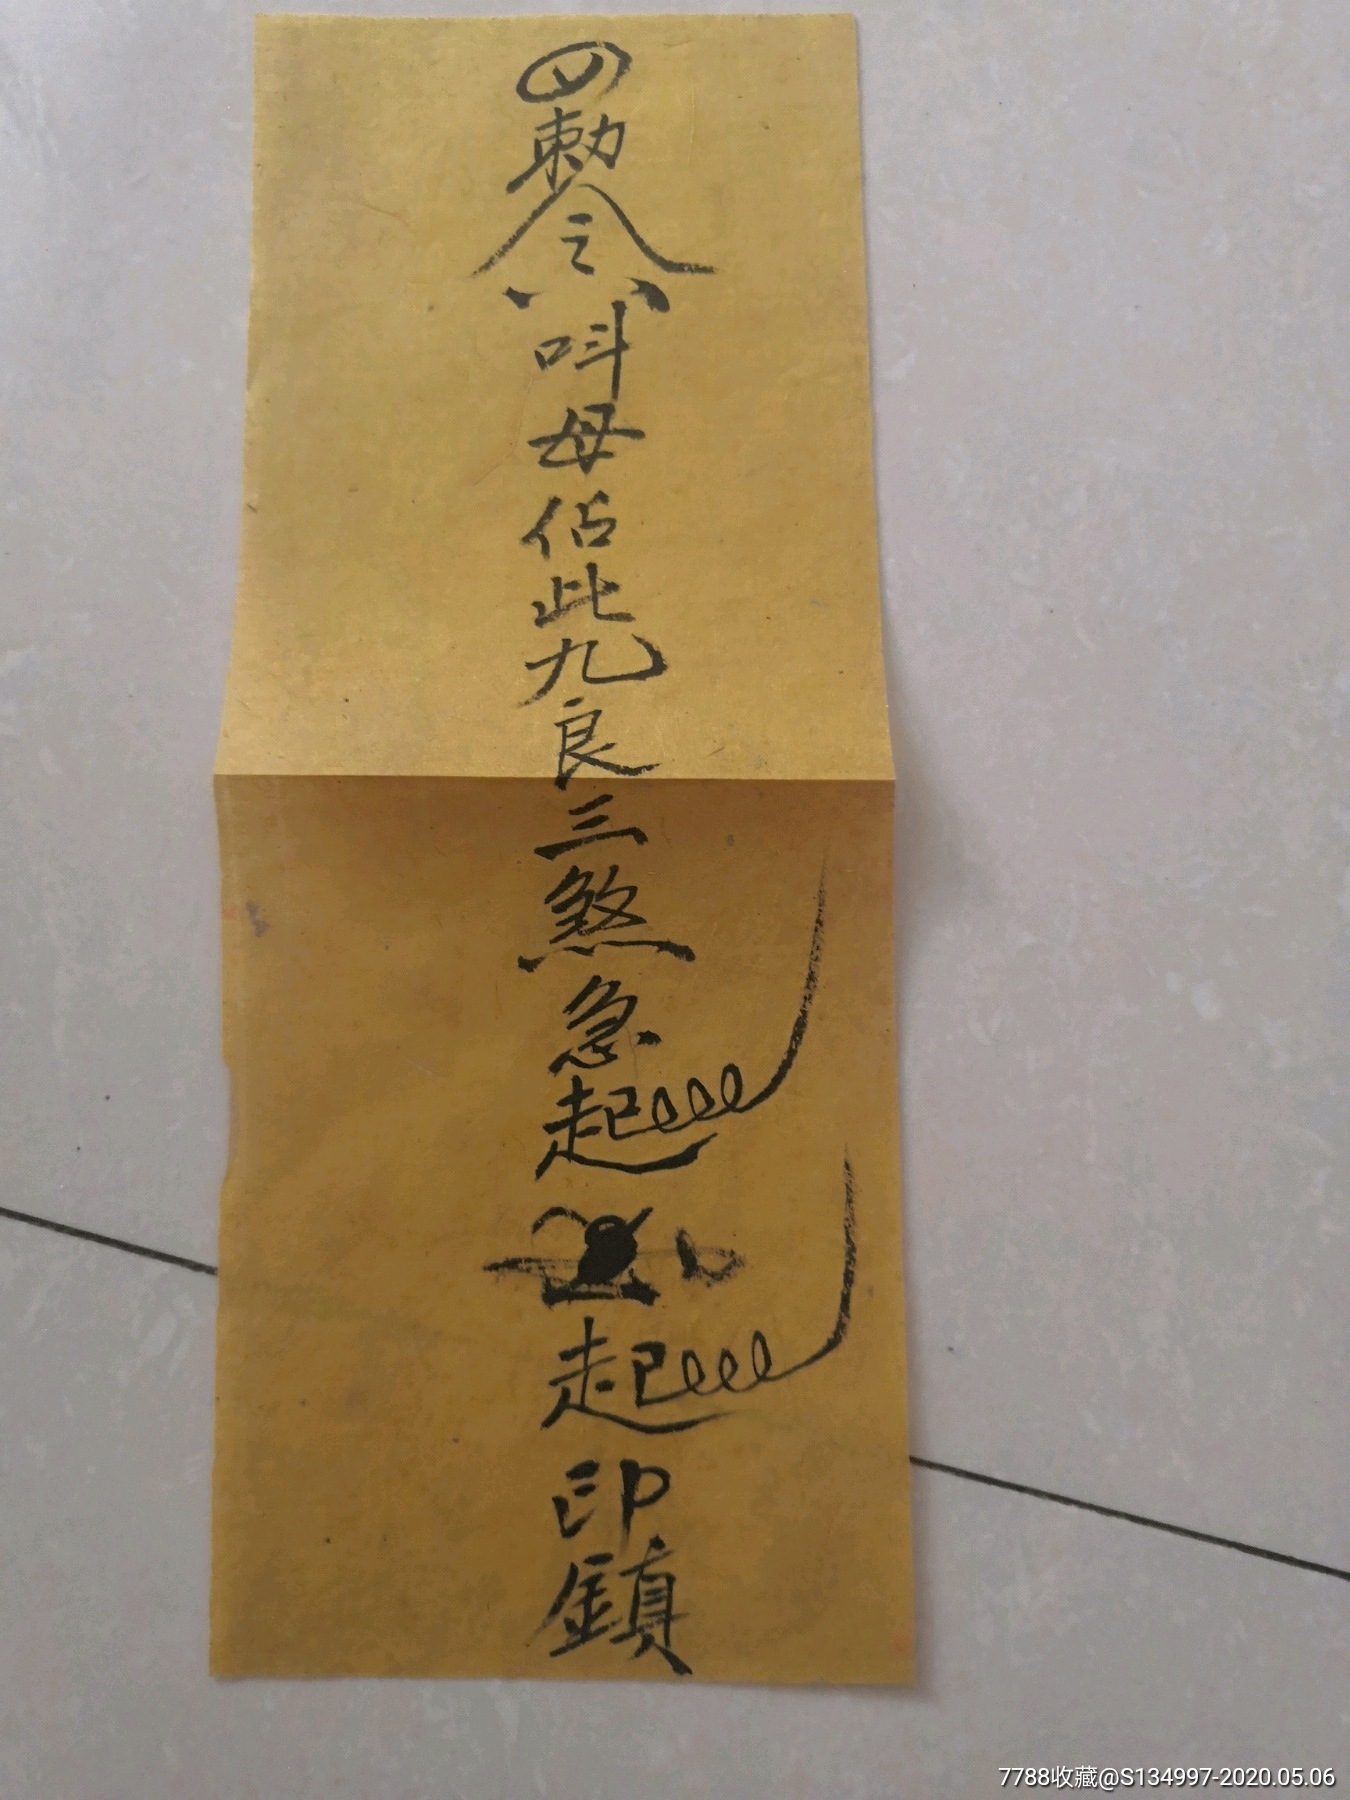 敕令
叫母佔此九良三煞急起
起印鎮
7788收藏@S134997-2020.05.06